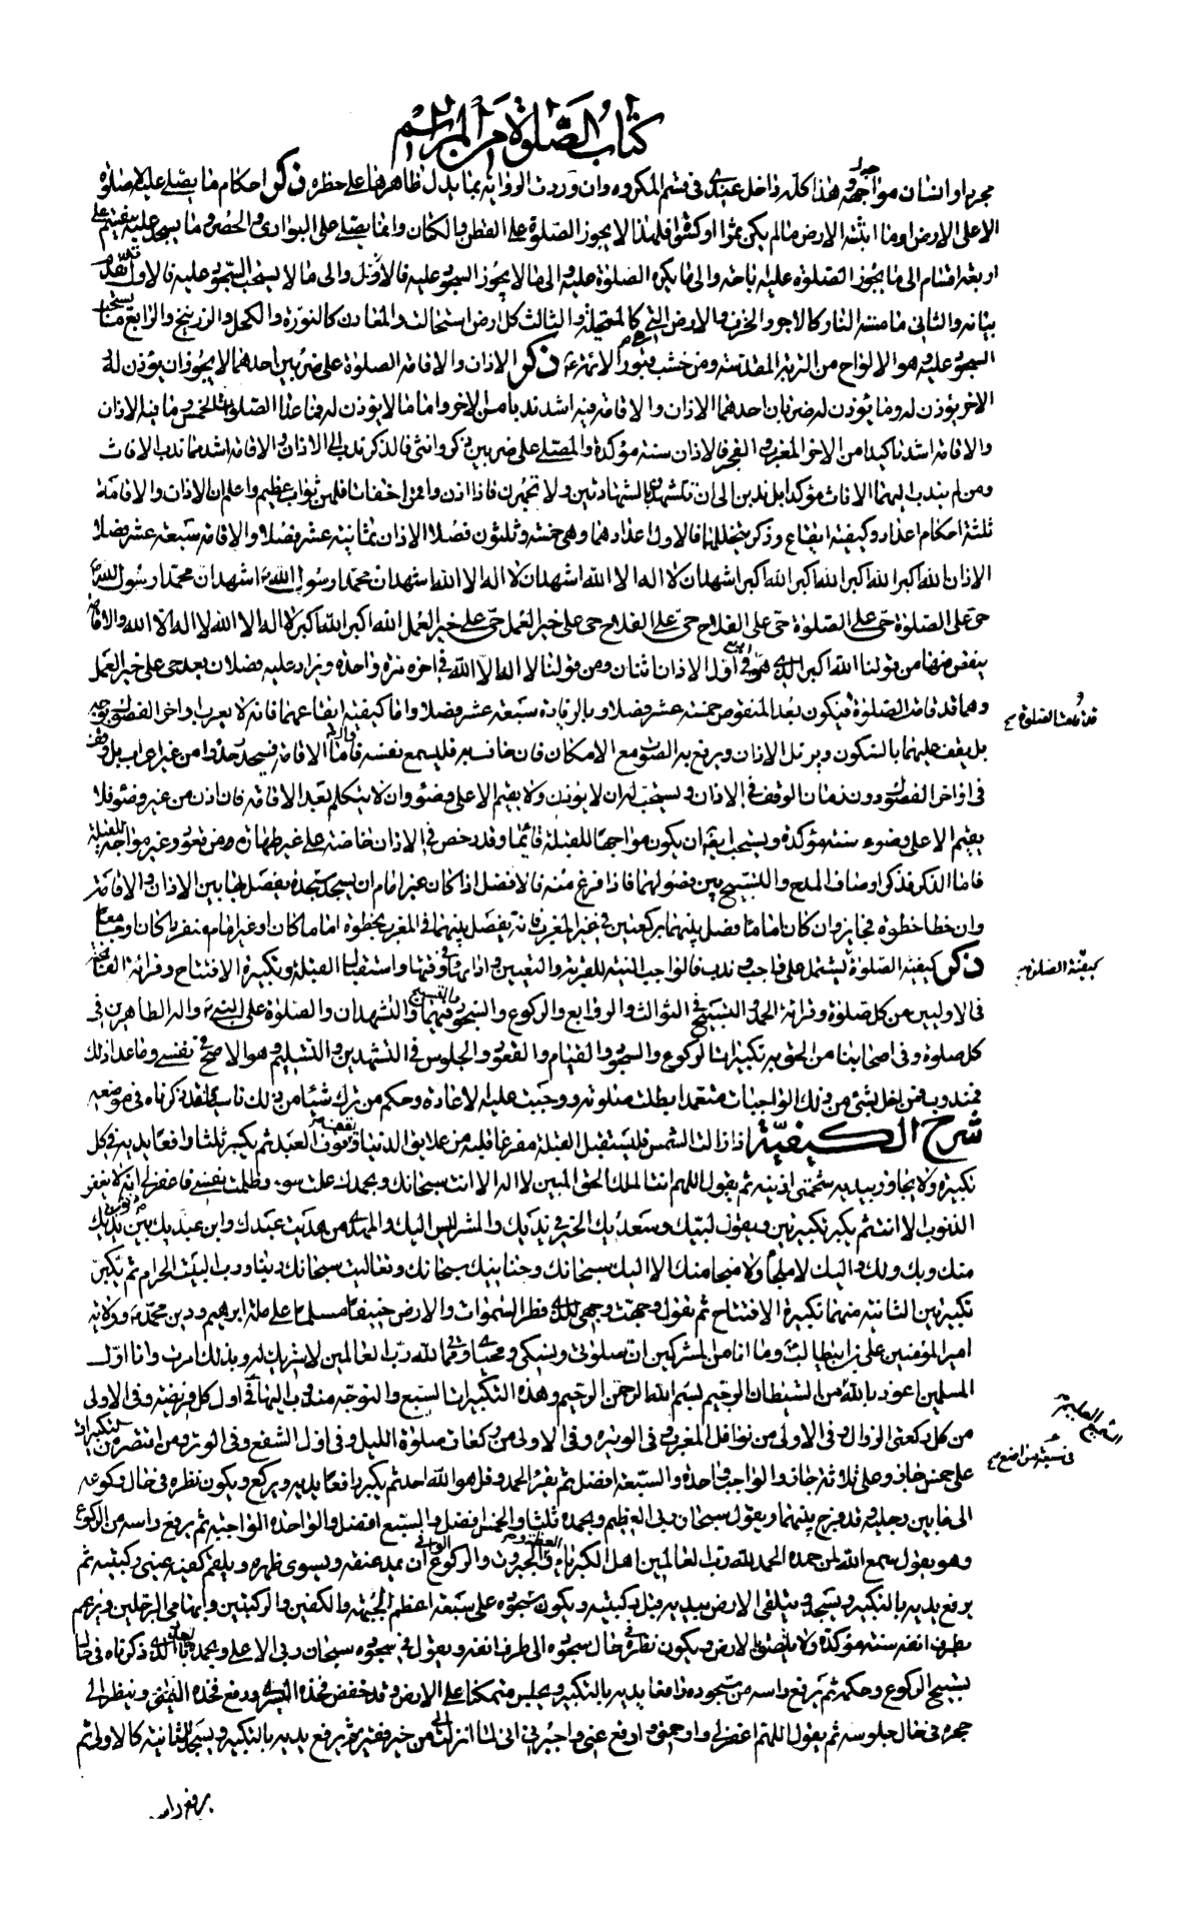 كتاب الصلوة من المراسم
مجردا وانسان مواجهه هذا كله داخل عندى فى قسم المكروه وان وردت الرواية بما يدل ظاهرها على حظره ذكر احكام ما يصلى عليه لا صلوة
الا على الارض وما انبتته الارض ما لم يكن ثمرا او كثرا فلهذا لا يجوز الصلوة على القطن والكتان وانما يصلى على البوارى والحصر وما يسجد عليه ينقسم على
اربعة اقسام الى ما يجوز الصلوة عليه باحة والى ما يكره الصلوة عليه والى ما لا يجوز السجود عليه فالاول والى ما لا يستحب السجود عليه فالاول تقدم
بيانه والثانى ما مسته النار كالاجر والخزف والارض والثالث كل ارض استحالت والمعادن كالنورة والكحل والزرنيخ والرابع ما يستحب
السجود عليه وهو الالواح من التربة المقدسة ومن خشب قبور الائمة ع ذكر الاذان والاقامة الصلوة على ضربين احدهما لا يجوز ان يؤذن له
الاخر يؤذن له وما يؤذن له ضربان احدهما الاذان والاقامة فيه اشد ندبا من الاخر واما ما لا يؤذن له فما عدا الصلوات الخمس وما فيه الاذان
والاقامة اشد تاكيدا من الاخر المغرب والفجر فالاذان سنة مؤكدة والمصلى على ضربين ذكر وانثى فالذكر ندب الى الاذان والاقامة اشد مما ندب الاناث
ومن لم يندب اليهما الاناث مؤكدا بل ندبن الى ان تتشهدن بالشهادتين ولا تجهرن فاذا اذن واقمن اخفاتا فلهن ثواب عظيم واعلم ان الاذان والاقامة
ثلثة احكام اعداد وكيفية ايقاع وذكر يتخللهما فالاول اعدادهما وهى خمسة وثلثون فصلا الاذان ثمانية عشر فصلا والاقامة سبعة عشر فصلا
الاذان الله اكبر الله اكبر الله اكبر الله اكبر اشهد ان لا اله الا الله اشهد ان لا اله الا الله اشهد ان محمدا رسول الله اشهد ان محمدا رسول الله
حى على الصلوة حى على الصلوة حى على الفلاح حى على الفلاح حى على خير العمل حى على خير العمل الله اكبر الله اكبر لا اله الا الله لا اله الا الله والاقامة
ينقص منها من قولنا الله اكبر الذى هو فى اول الاذان اثنان ومن قولنا لا اله الا الله فى اخره مرة واحدة ويزاد عليه فصلان بعد حى على خير العمل
وهما قد قامت الصلوة فيكون بعد المنقوص خمسة عشر فصلا وبالزيادة سبعة عشر فصلا واما كيفية ايقاعهما فانه لا يعرب اواخر الفصول بوجه
بل يقف عليهما بالسكون ويرتل الاذان ويرفع به الصوت مع الامكان فان خافت به فليسمع نفسه فاما الاقامة فيحدر حدرا من غير اعراب بل وقف
فى اواخر الفصول دون زمان الوقف فى الاذان ويستحب له ان لا يؤذن ولا يقيم الا على وضوء وان لا يتكلم بعد الاقامة فان اذن من غير وضوء فلا
يقيم الا على وضوء سنة مؤكدة ويستحب ايضا ان يكون مواجها للقبلة قائما وقد رخص فى الاذان خاصة على غير طهارة ومن قعود وغير مواجه للقبلة
فاما الذكر فذكر اوصاف المدح والتسبيح بين فصولهما فاذا فرغ منه فالافضل اذا كان غير امام ان يسجد سجدة يفصل بها بين الاذان والاقامة
وان خطا خطوة فجايز وان كان اماما فصل بينهما بركعتين فى غير المغرب فانه يفصل بينهما فى المغرب بخطوة اماما كان او غير امام منفردا كان او جامعا
ذكر كيفية الصلوة يشتمل على واجب وندب فالواجب النية للقربة والتعيين واداؤها فى وقتها واستقبال القبلة وتكبيرة الافتتاح وقراءة الفاتحة
فى الاوليين من كل صلوة وقراءة الحمد او التسبيح فى الثوالث والروابع والركوع والسجود والتسبيح فيهما والتشهدان والصلوة على النبى واله الطاهرين فى
كل صلوة وفى اصحابنا من الحق به تكبيرات الركوع والسجود والقيام والقعود والجلوس فى التشهدين والتسليم وهو الاصح فى نفسى وما عدا ذلك
فمندوب فمن اخل بشئ من ذلك الواجبات متعمدا بطلت صلوته ووجبت عليه الاعادة وحكم من ترك شيئا من ذلك ناسيا فقد ذكرناه فى موضعه
شرح الكيفية اذا زالت الشمس فليستقبل القبلة مفرغا قلبه من علايق الدنيا وقوف العبد ثم يكبر ثلثا رافعا يديه فى كل
تكبيرة ولا يجاوز بيديه شحمتى اذنيه ثم يقول اللهم انت الملك الحق المبين لا اله الا انت سبحانك وبحمدك عملت سوء وظلمت نفسى فاغفر لى انه لا يغفر
الذنوب الا انت ثم يكبر تكبيرتين ويقول لبيك وسعديك الخير فى يديك والشر ليس اليك والمهدى من هديت عبدك وابن عبديك بين يديك
منك وبك ولك واليك لا ملجأ ولا منجا منك الا اليك سبحانك وحنانيك سبحانك وتعاليت سبحانك ربنا ورب البيت الحرام ثم يكبر
تكبيرتين الثانية منهما تكبيرة الافتتاح ثم يقول وجهت وجهى للذى فطر السموات والارض حنيفا مسلما على ملة ابرهيم ودين محمد وولاية
امير المؤمنين على بن ابيطالب وما انا من المشركين ان صلوتى ونسكى ومحياى ومماتى لله رب العالمين لا شريك له وبذلك امرت وانا اول
المسلمين اعوذ بالله من الشيطان الرجيم بسم الله الرحمن الرحيم وهذه التكبيرات السبع والتوجه مندوب اليها فى اول كل فريضة وفى الاولى
من كل ركعتى الزوال وفى الاولى من نوافل المغرب وفى الوتيرة وفى الاولى من ركعات صلوة الليل وفى اول الشفع وفى الوتر ومن اقتصر من التكبيرات
على خمس جاز وعلى ثلثة جاز والواجب واحدة والسبعة افضل ثم يقرء الحمد وقل هو الله احد ثم يكبر رافعا يديه ويركع ويكون نظره فى حال ركوعه
الى ما بين رجليه قد فرج بينهما ويقول سبحان ربى العظيم وبحمده ثلثا والخمس افضل والسبع افضل والواحدة الواجبة ثم يرفع راسه من الركوع
وهو يقول سمع الله لمن حمده الحمد لله رب العالمين اهل الكبرياء والعظمة والجبروت والركوع ان يمد عنقه ويسوى ظهره ويلقم كفيه عينى ركبتيه ثم
يرفع يديه بالتكبير ويسجد ويتلقى الارض بيديه قبل ركبتيه ويكون سجوده على سبعة اعظم الجبهة والكفين والركبتين وابهامى الرجلين ويرغم
بطرف انفه سنة مؤكدة ولا يلتصق بالارض ويكون نظره فى حال سجوده الى طرف انفه ويقول فى سجوده سبحان ربى الاعلى وبحمده الذى ذكرناه فى حال
تسبيح الركوع وحكمه ثم يرفع راسه من سجوده رافعا يديه بالتكبير ويجلس متمكنا على الارض وقد خفض فخذه اليسرى ورفع فخذه اليمنى وينظر الى
حجره فى حال جلوسه ثم يقول اللهم اغفر لى وارحمنى وادفع عنى واجبرنى انى لما انزلت الى من خير فقير ثم يرفع يديه بالتكبير ويسجد الثانية كالاولى ثم
يرفع راسه
قد قامت الصلوة
كيفية الصلوة
فى سبعة مواضع